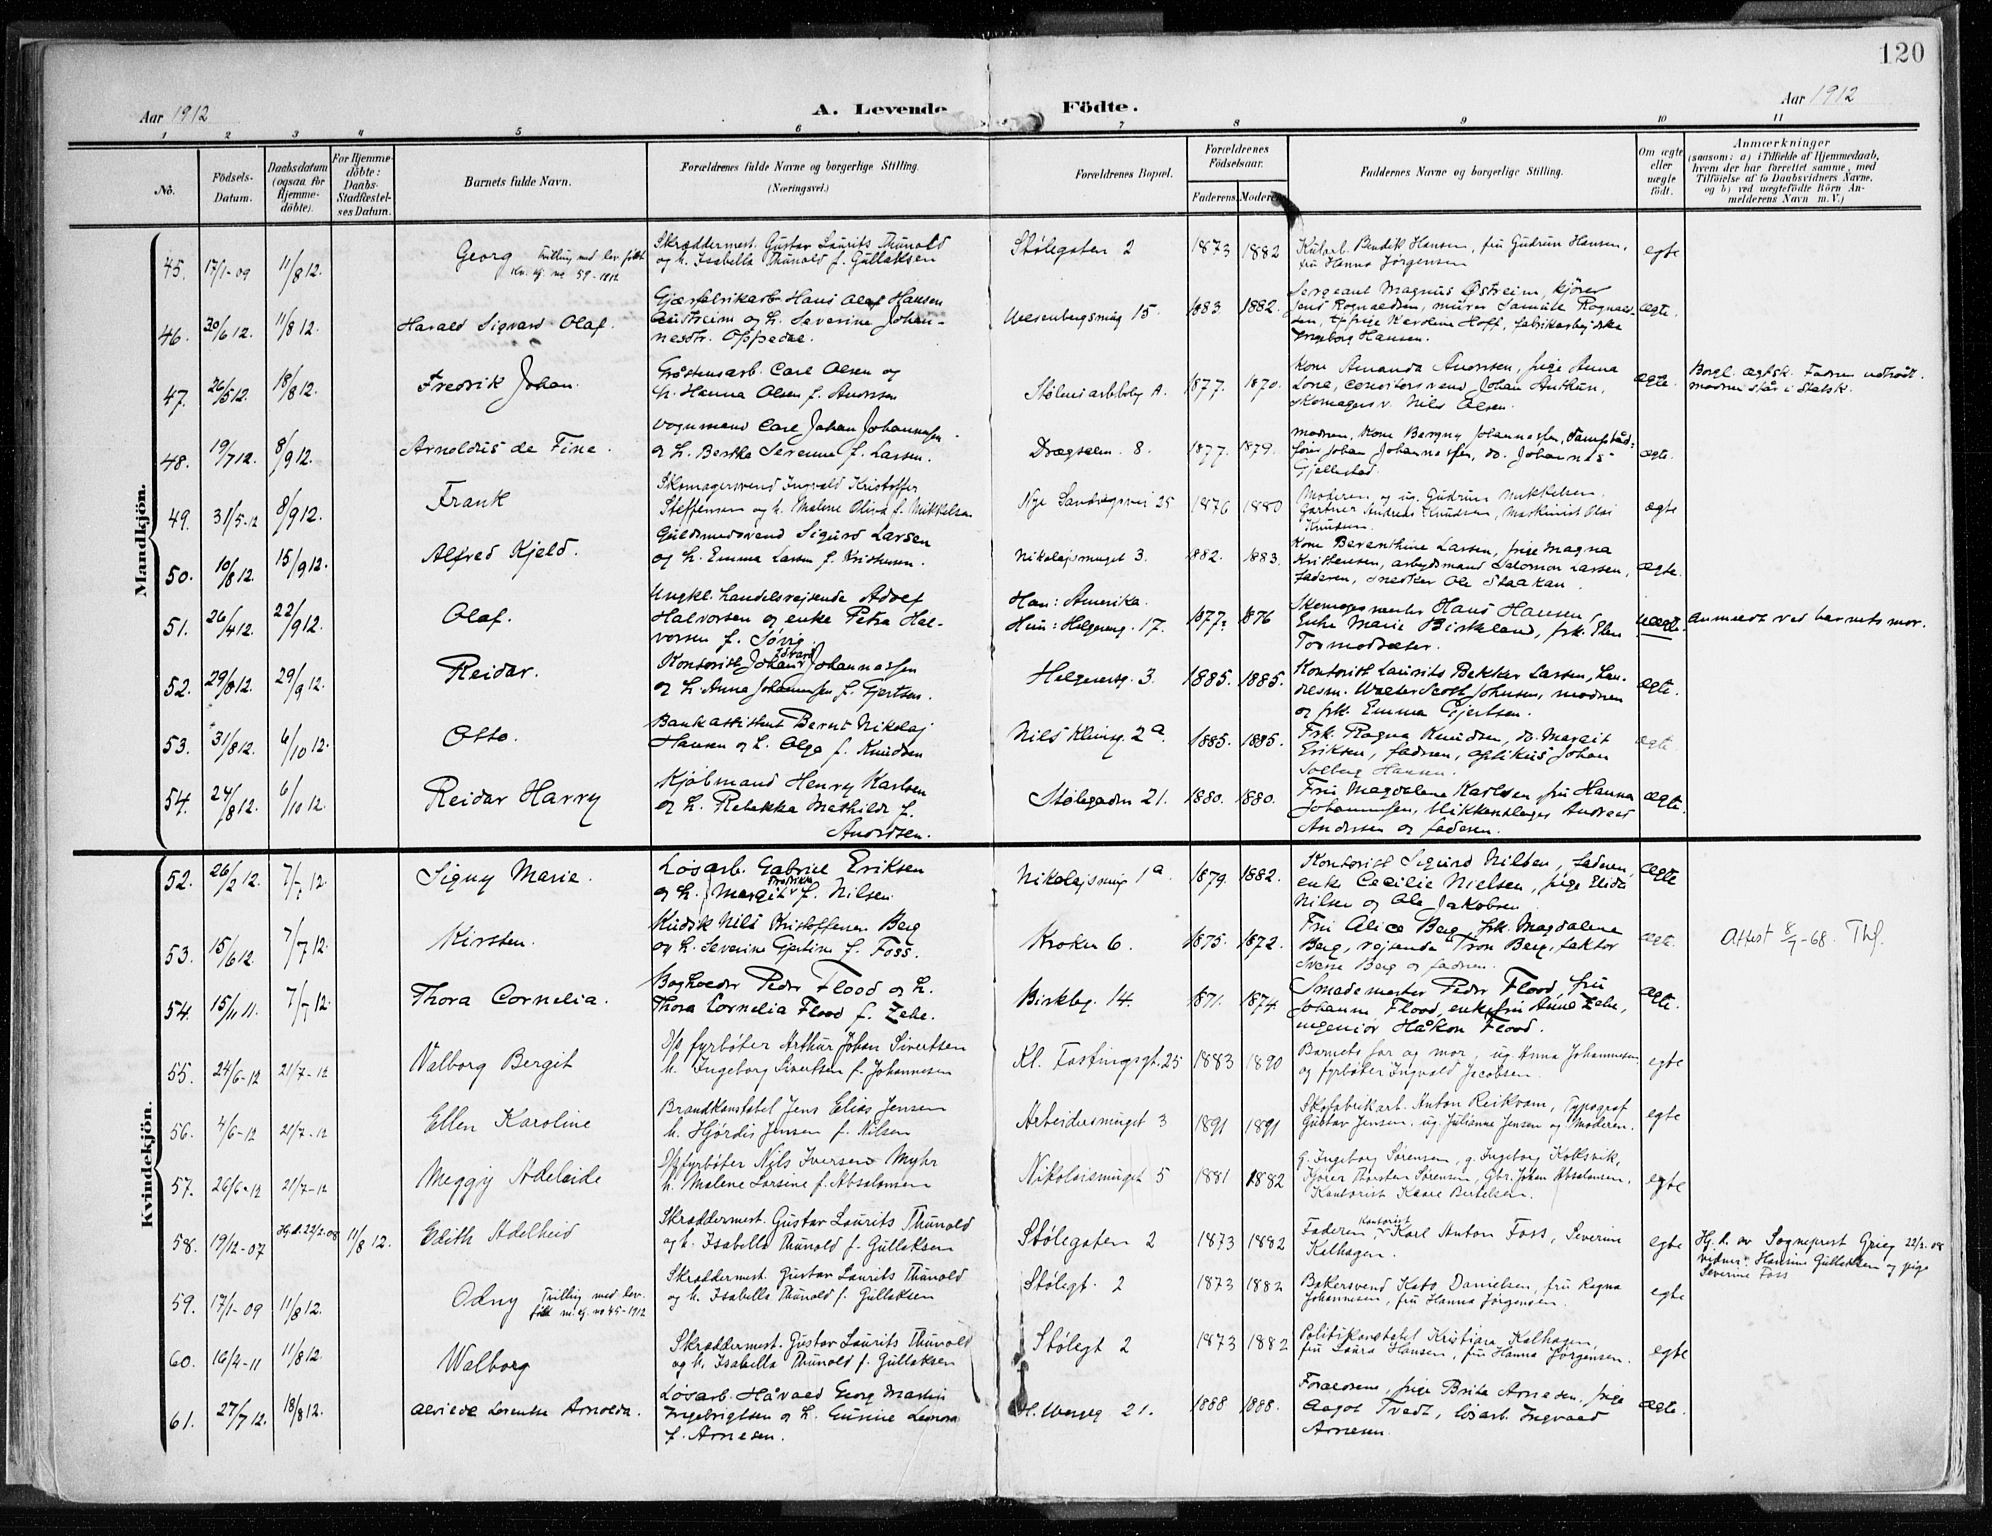 120
Aar 1912
A. Levende Födte.
Aar 1912
1 2 3 4 5 6 7 8 9 10 11
No.
Födsels-
Datum.
Daabsdatum
(ogsaa for
Hjemme-
döbte).
For Hjemme-
döbte:
Daabs-
Stadfæstel-
ses Datum.
Barnets fulde Navn.
Forældrenes fulde Navne og borgerlige Stilling.
(Næringsvei.)
Forældrenes Bopæl.
Forældrenes
Födselsaar.
Faderens. Moderens
Faddernes Navne og borgerlige Stilling.
Om ægte
eller
uægte
födt.
Anmærkninger
(saasom: a) i Tilfælde af Hjemmedaab,
hvem der har forrettet samme, med
Tilföielse af to Daabsvidners Navne,
og b) ved uægtefödte Börn An-
melderens Navn m. V.)
Mandkjön.
45. 17/1-09 11/8 12. Georg Trilling med lev. født
kv. cf. no 59-1912
Skræddermest. Gustav Laurits Thunold
og h. Isabella Thunold f. Gullaksen
Stølegaten 2 1873 1882
Bendik Hansen, fru Gudrun Hansen,
fru Hanna Jørgensen
egte
46. 30/6 12. 11/8 12. Harald Sigvard Olaf.
Gjærfabrikarb. Hans Olaf Hansen
Austheim og h. Severine Johan-
nesdtr. Oppedal.
15. 1883. 1882.
Sergeant Magnus Østreim, kjører
Jens Rognaldsen, murer Samuel Rognald-
sen, pige Karoline Hoff, fabrikarbejdske
Ingeborg Hansen.
ægte.
47. 26/5 12. 18/8 12. Fredrik Johan.
Carl Olsen og
h. Hanna Olsen f. Andersen
A. 1877. 1870.
Kone Amanda Andersen, pige Anna
Lone, conditorsvend Johan
Skomagersv. Nils Olsen.
ægte.
Borgl. ægtsk. Fadren udtrådt.
modren står i Statsk.
48. 19/7 12. 8/9 12. Arnoldus de Fine.
Vognmand Carl Johan Johannessen
og h. Bertha Severine f. Larsen.
Drægsalm. 8. 1877. 1879.
Modren, Kone Bergny Johannessen,
fører Johan Johannessen, do. Johannes
Gjellestad.
ægte.
49. 31/5-12 8/9 12. Frank
Skomagersvend Ingvald Kristoffer
Steffensen og h. Malene Oliva f. Mikkelsen
Nye Sandviksvei 25 1876 1880
Moderen, og ug. Gudrun Mikkelsen.
Gartner Andreas Knudsen, Maskinist Olai
Knudsen.
egte
50. 10/8 12. 15/9 12. Alfred Kjeld.
Guldsmedsvend Sigurd Larsen
og h. Emma Larsen f. Kristensen.
Nikolajsmuget 3. 1882. 1883.
Kone Berenthine Larsen, pige Magna
Kristensen, arbejdsmand Salomon Larsen,
faderen, snedker Ole Staakan.
ægte.
51. 26/4 12. 22/9 12. Olaf.
Ungkl. handelsrejsende Adolf
Halvorsen og enke Petra Hal-
vorsen f. Søvig.
Han: Amerika.
Hun: Helgeseng. 17. 1877. 1876
Skomagermester Hans Hansen,
Enke Marie Birkeland, frk. Elen
Tormodsæter.
uægte.
Anmeldt ved barnets mor.
52. 29/8 12. 29/9 12. Reidar.
Kontorist Johan Edvard Johannessen
og h. Anna Johannessen f. Gjertsen.
Helgeseng. 3. 1885. 1885.
Kontorist Laurits Bekker Larsen, Lan-
Walter Scott Johnsen, modren
og frk. Emma Gjertsen.
ægte.
53. 31/8 12. 6/10 12. Otto.
Bankassistent Bernt Nikolaj
Hansen og h. Olga f. Knudsen
Nils Klimsg. 2a. 1885. 1885.
Frk. Ragna Knudsen, do. Margit
Eriksen, fadren, optikus Johan
Solberg Hansen.
ægte.
54. 24/8 12. 6/10 12 Reidar Harry
Kjøbmand Henry Karlsen
og h. Rebekka Mathilde f.
Andersen.
Stølegaden 21. 1880. 1880.
Fru Magdalene Karlsen, fru Hanna
Johannessen, blikkenslager Andreas
Andersen og faderen.
ægte.
Kvindekjön.
52. 26/2 12. 7/7 12 Signy Marie.
Løsarb. Gabriel Eriksen
og h. Margit Fredrikke f. Nilsen.
Nikolajsmug 1a 1879. 1882.
Kontorist Sigurd Nilsen, fadren,
enke Cecilie Nielsen, pige Elida
Nilsen og Ole Jakobsen.
ægte
53. 15/6 12. 7/7 12. Kirsten.
Nils Kristoffersen Berg
og h. Severine Gjertine f. Foss.
Kroken 6. 1875. 1872.
Fru Alice Berg, frk. Magdalene
Berg, rejsende Tron Berg, faktor
Sverre Berg og fadren.
ægte.
Attest 8/7-68. Thf.
54. 15/11 11. 7/7 12. Thora Cornelia.
Bogholder Peder Flood og h.
Thora Cornelia Flood f. Zehe.
Birkbg. 14. 1871. 1874.
Smedemester Peder Flood, fru
Johanne Flood, enkefru Anne Zehe,
ingeniør Håkon Flood.
ægte.
55. 24/6-12 21/7-12 Valborg Bergit
D/s fyrbøter Arthur Johan Sivertsen
h. Ingeborg Sivertsen f. Johannesen
Kl. Fostingsgt. 25 1883 1890
Barnets far og mor, ug. Anna Johannesen
og fyrbøter Ingvald Jacobsen.
egte
56. 4/6-12 21/7-12 Ellen Karoline
Brandkonstabel Jens Elias Jensen
h. Hjørdis Jensen f. Nilsen
Arbeidersmuget 3 1891 1891
Skofabrikarb. Anton Reikvam, Typograf
Gustav Jensen, ug. Julianne Jensen og Moderen.
egte
57. 26/6-12 21/7-12 Meggy Adeleide
D/s fyrbøter Nils Iversen Myhr
h. Malene Larsine f. Absalonsen
Nikolaismuget 5 1881 1882
g. Ingeborg Sørensen, g. Ingeborg Koksvik,
Kjører Thorsten Sørensen, Gbr. Johan Absalonsen,
Kontorist Kaare Bertelsen.
egte
58. 19/12-07 Hj.d. 22/2-08 11/8 12. Edith Adelheid
Skræddermest. Gustav Laurits Thunold
og h. Isabella Thunold f. Gullaksen
Stølegaten 2 1873 1882
Faderen, Kontorist Karl Anton Foss, Severine
Kalhagen.
egte
Hj. d. av Sogneprest Grieg 22/2-08
vidner: Hansine Gullaksen og pige
Severine Foss
59. 17/1-09 11/8 12. Odny Trilling med lev.
født m. cf. no 45-1912
Skræddermest. Gustav Laurits Thunold
og h. Isabella Thunold f. Gullaksen
Stølegt. 2 1873 1882
Bakersvend Kato Danielsen, fru Ragna
Johannesen, fru Hanna Jørgensen.
egte
60. 16/4-11 11/8 12. Walborg
Skræddermest. Gustav Laurits Thunold
og h. Isabella Thunold f. Gullaksen
Stølegt 2 1873 1882
Politikonstabel Kristian Kalhagen,
fru Laura Hansen, fru Hanna Jørgensen.
egte
61. 27/7 12. 18/8 12. Alvilde Lorentse Arnolda.
Løsarb. Håvald Georg Martin
Ingebrigtsen og h. Gurine Leonora
f. Arnesen.
21. 1888 1888.
Forældrene, pige Brita Arnesen, pige
Aagot Tvedt, løsarb. Ingvald
Arnesen.
ægte.